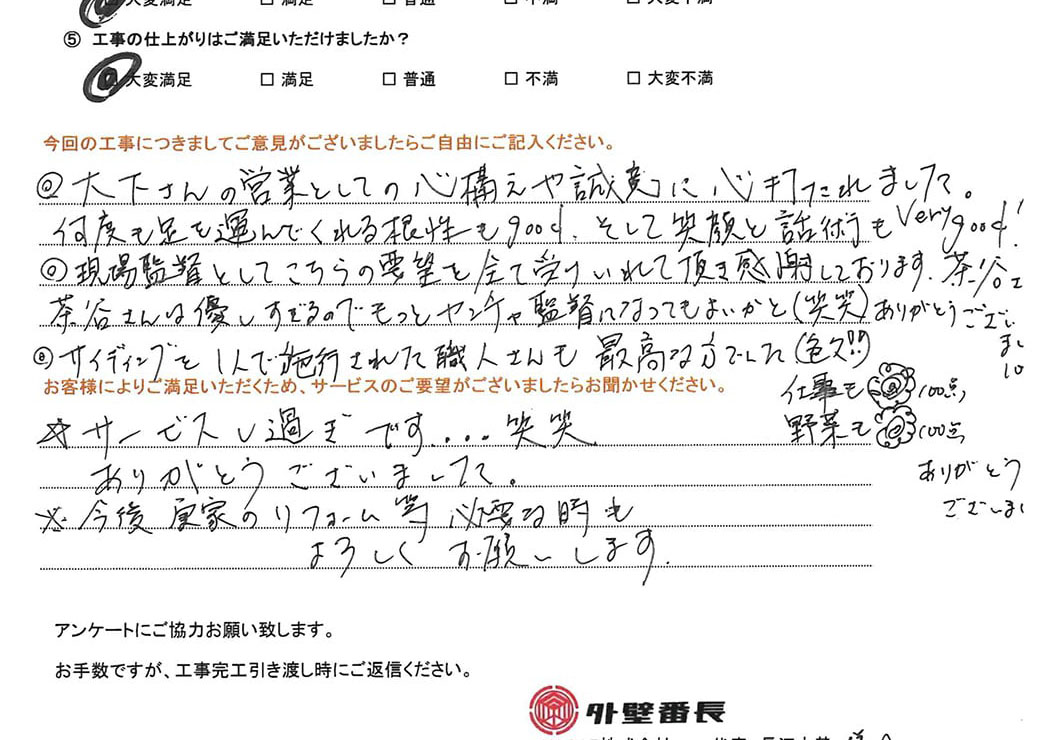 大変満足 □ 満足 □ 普通 □ 不満 □ 大変不満
⑤ 工事の仕上がりはご満足いただけましたか？
大変満足 □ 満足 □ 普通 □ 不満 □ 大変不満
今回の工事につきましてご意見がございましたらご自由にご記入ください。
◎大下さんの営業としての心構えや誠実に心打たれました。
何度も足を運んでくれる根性もgood. そして笑顔と話術もVery good!
◎現場監督としてこちらの要望を全て受け入れて頂き感謝しております. 茶谷
茶谷さんは優しすぎるのでもっとヤンチャ監督になってもよいかと(笑笑) ありがとうござい
まし
◎サイディングを1人で施行された職人さんも 最高な方でした
お客様によりご満足いただくため、サービスのご要望がございましたらお聞かせください。
仕事も 100点
☆サービスし過ぎです... 笑笑
野菜も 100点
ありがとうございました。
ありがとう
ございまし
※今後 家のリフォーム等 必要な時も
よろしくお願いします.
アンケートにご協力お願い致します。
お手数ですが、工事完工引き渡し時にご返信ください。
外壁番長